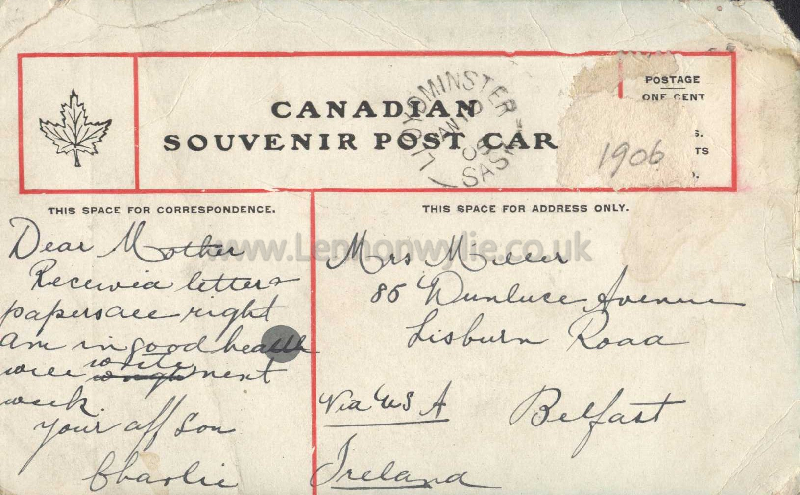 POSTAGE
ONE CENT
CANADIAN
SOUVENIR POST CAR
LLOYDMINSTER
SASK
1906
THIS SPACE FOR CORRESPONDENCE.
THIS SPACE FOR ADDRESS ONLY.
www.Lennonwylie.co.uk
Dear Mother
Received letter &
papers all right
am in good health
will write next
week.
Your aff Son
Charlie
Mrs Miller
85 Dunluce Avenue
Lisburn Road
Belfast
Via USA
Ireland